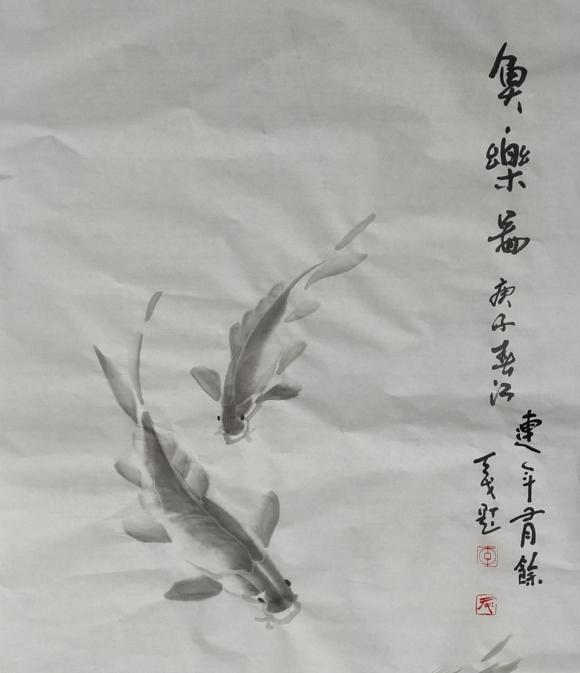 魚樂圖 庚子春江
連年有餘
題